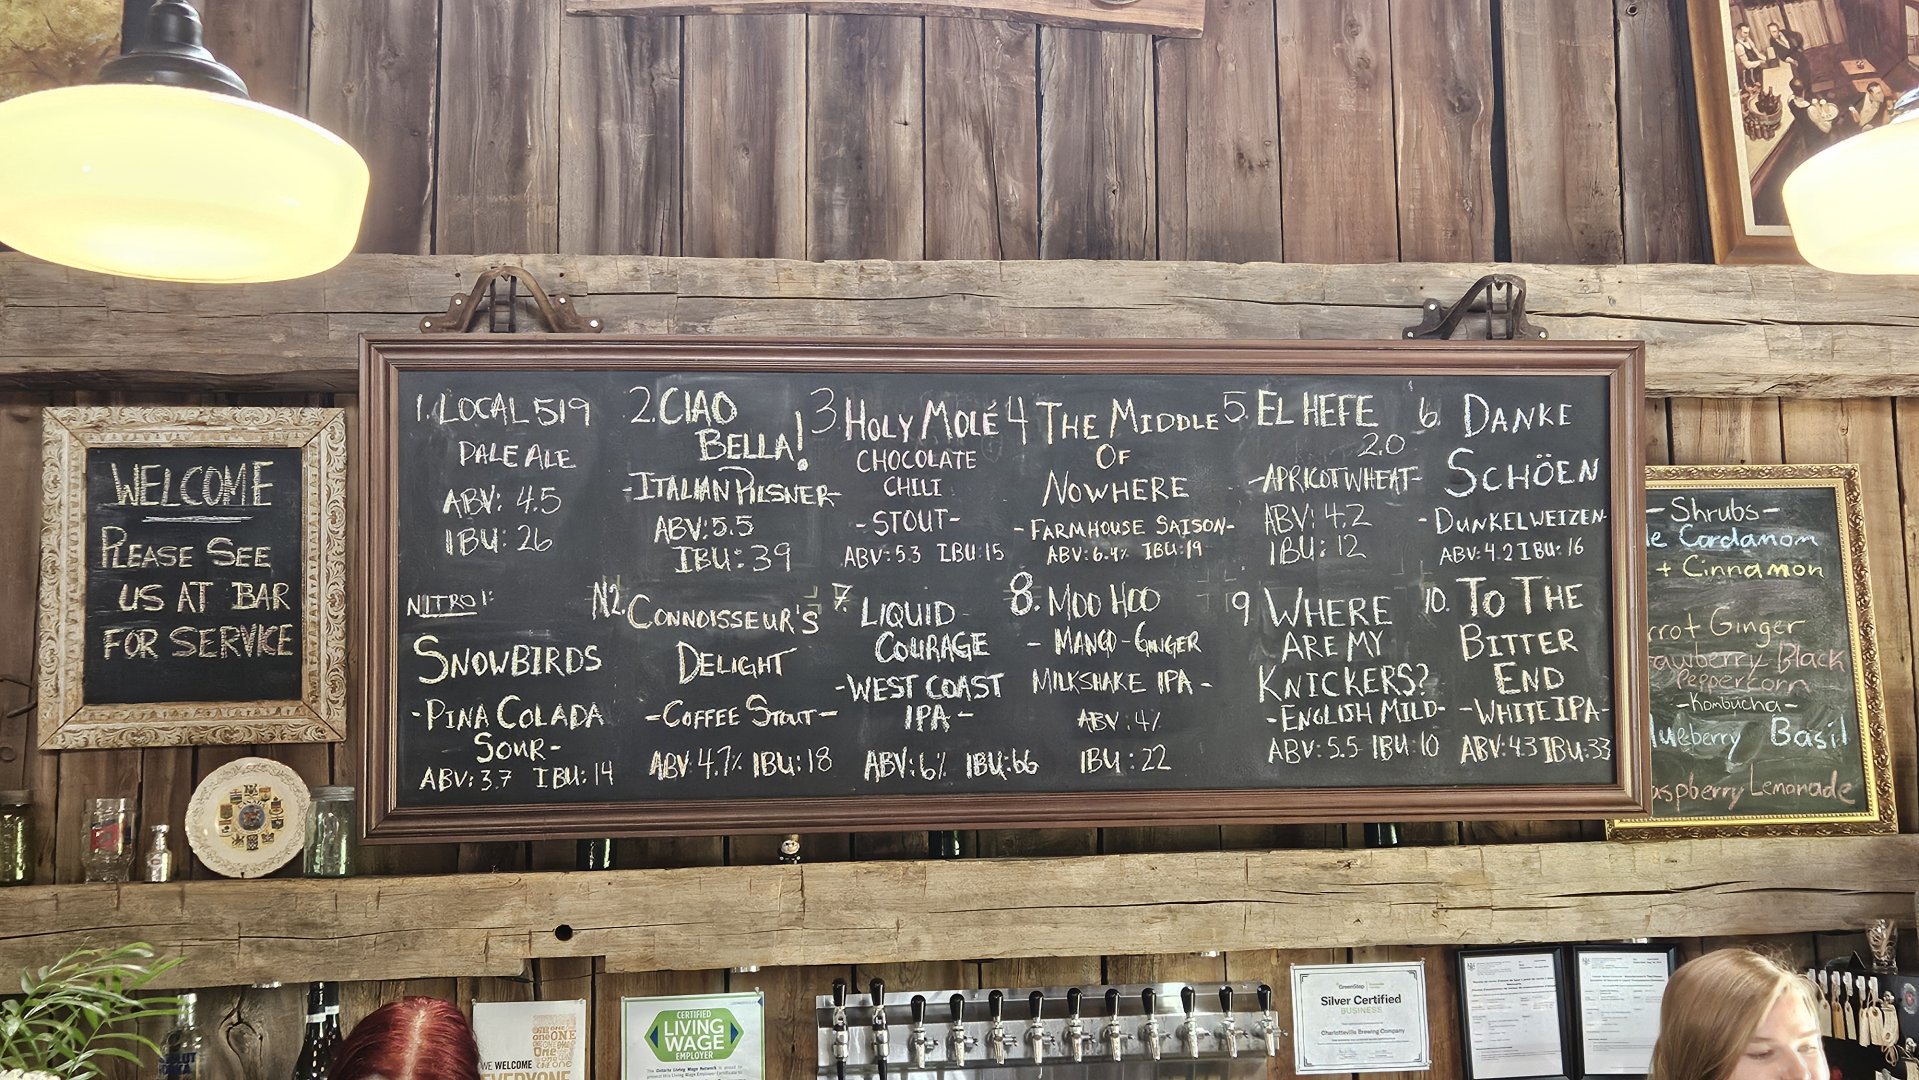 WELCOME
PLEASE SEE
US AT BAR
FOR SERVICE
1. LOCAL 519
PALE ALE
ABV: 4.5
IBU: 26
2. CIAO
BELLA!
-ITALIAN PILSNER-
ABV: 5.5
IBU: 39
3 HOLY MOLÉ
CHOCOLATE
CHILI
-STOUT-
ABV: 5.3 IBU: 15
4 THE MIDDLE
OF
NOWHERE
-FARMHOUSE SAISON-
ABV: 6.4% IBU: 19
5. EL HEFE
2.0
-APRICOT WHEAT-
ABV: 4.2
IBU: 12
6. DANKE
SCHÖEN
-DUNKELWEIZEN-
ABV: 4.2 IBU: 16
NITRO 1:
SNOWBIRDS
-PINA COLADA
SOUR-
ABV: 3.7 IBU: 14
N2. CONNOISSEUR'S
DELIGHT
-COFFEE STOUT-
ABV 4.7% IBU: 18
7. LIQUID
COURAGE
-WEST COAST
IPA-
ABV: 6% IBU: 66
8. MOO HOO
- MANGO-GINGER
MILKSHAKE IPA -
ABV: 4%
IBU: 22
9 WHERE
ARE MY
KNICKERS?
-ENGLISH MILD-
ABV: 5.5 IBU: 10
10. TO THE
BITTER
END
-WHITE IPA-
ABV: 4.3 IBU: 33
-Shrubs-
Cardamom
+ Cinnamon
Ginger
Black
Peppercorn
-Kombucha-
Basil
Lemonade
WE WELCOME
EVERYONE
CERTIFIED
LIVING
WAGE
EMPLOYER
GreenStep
Silver Certified
BUSINESS
Charlotteville Brewing Company